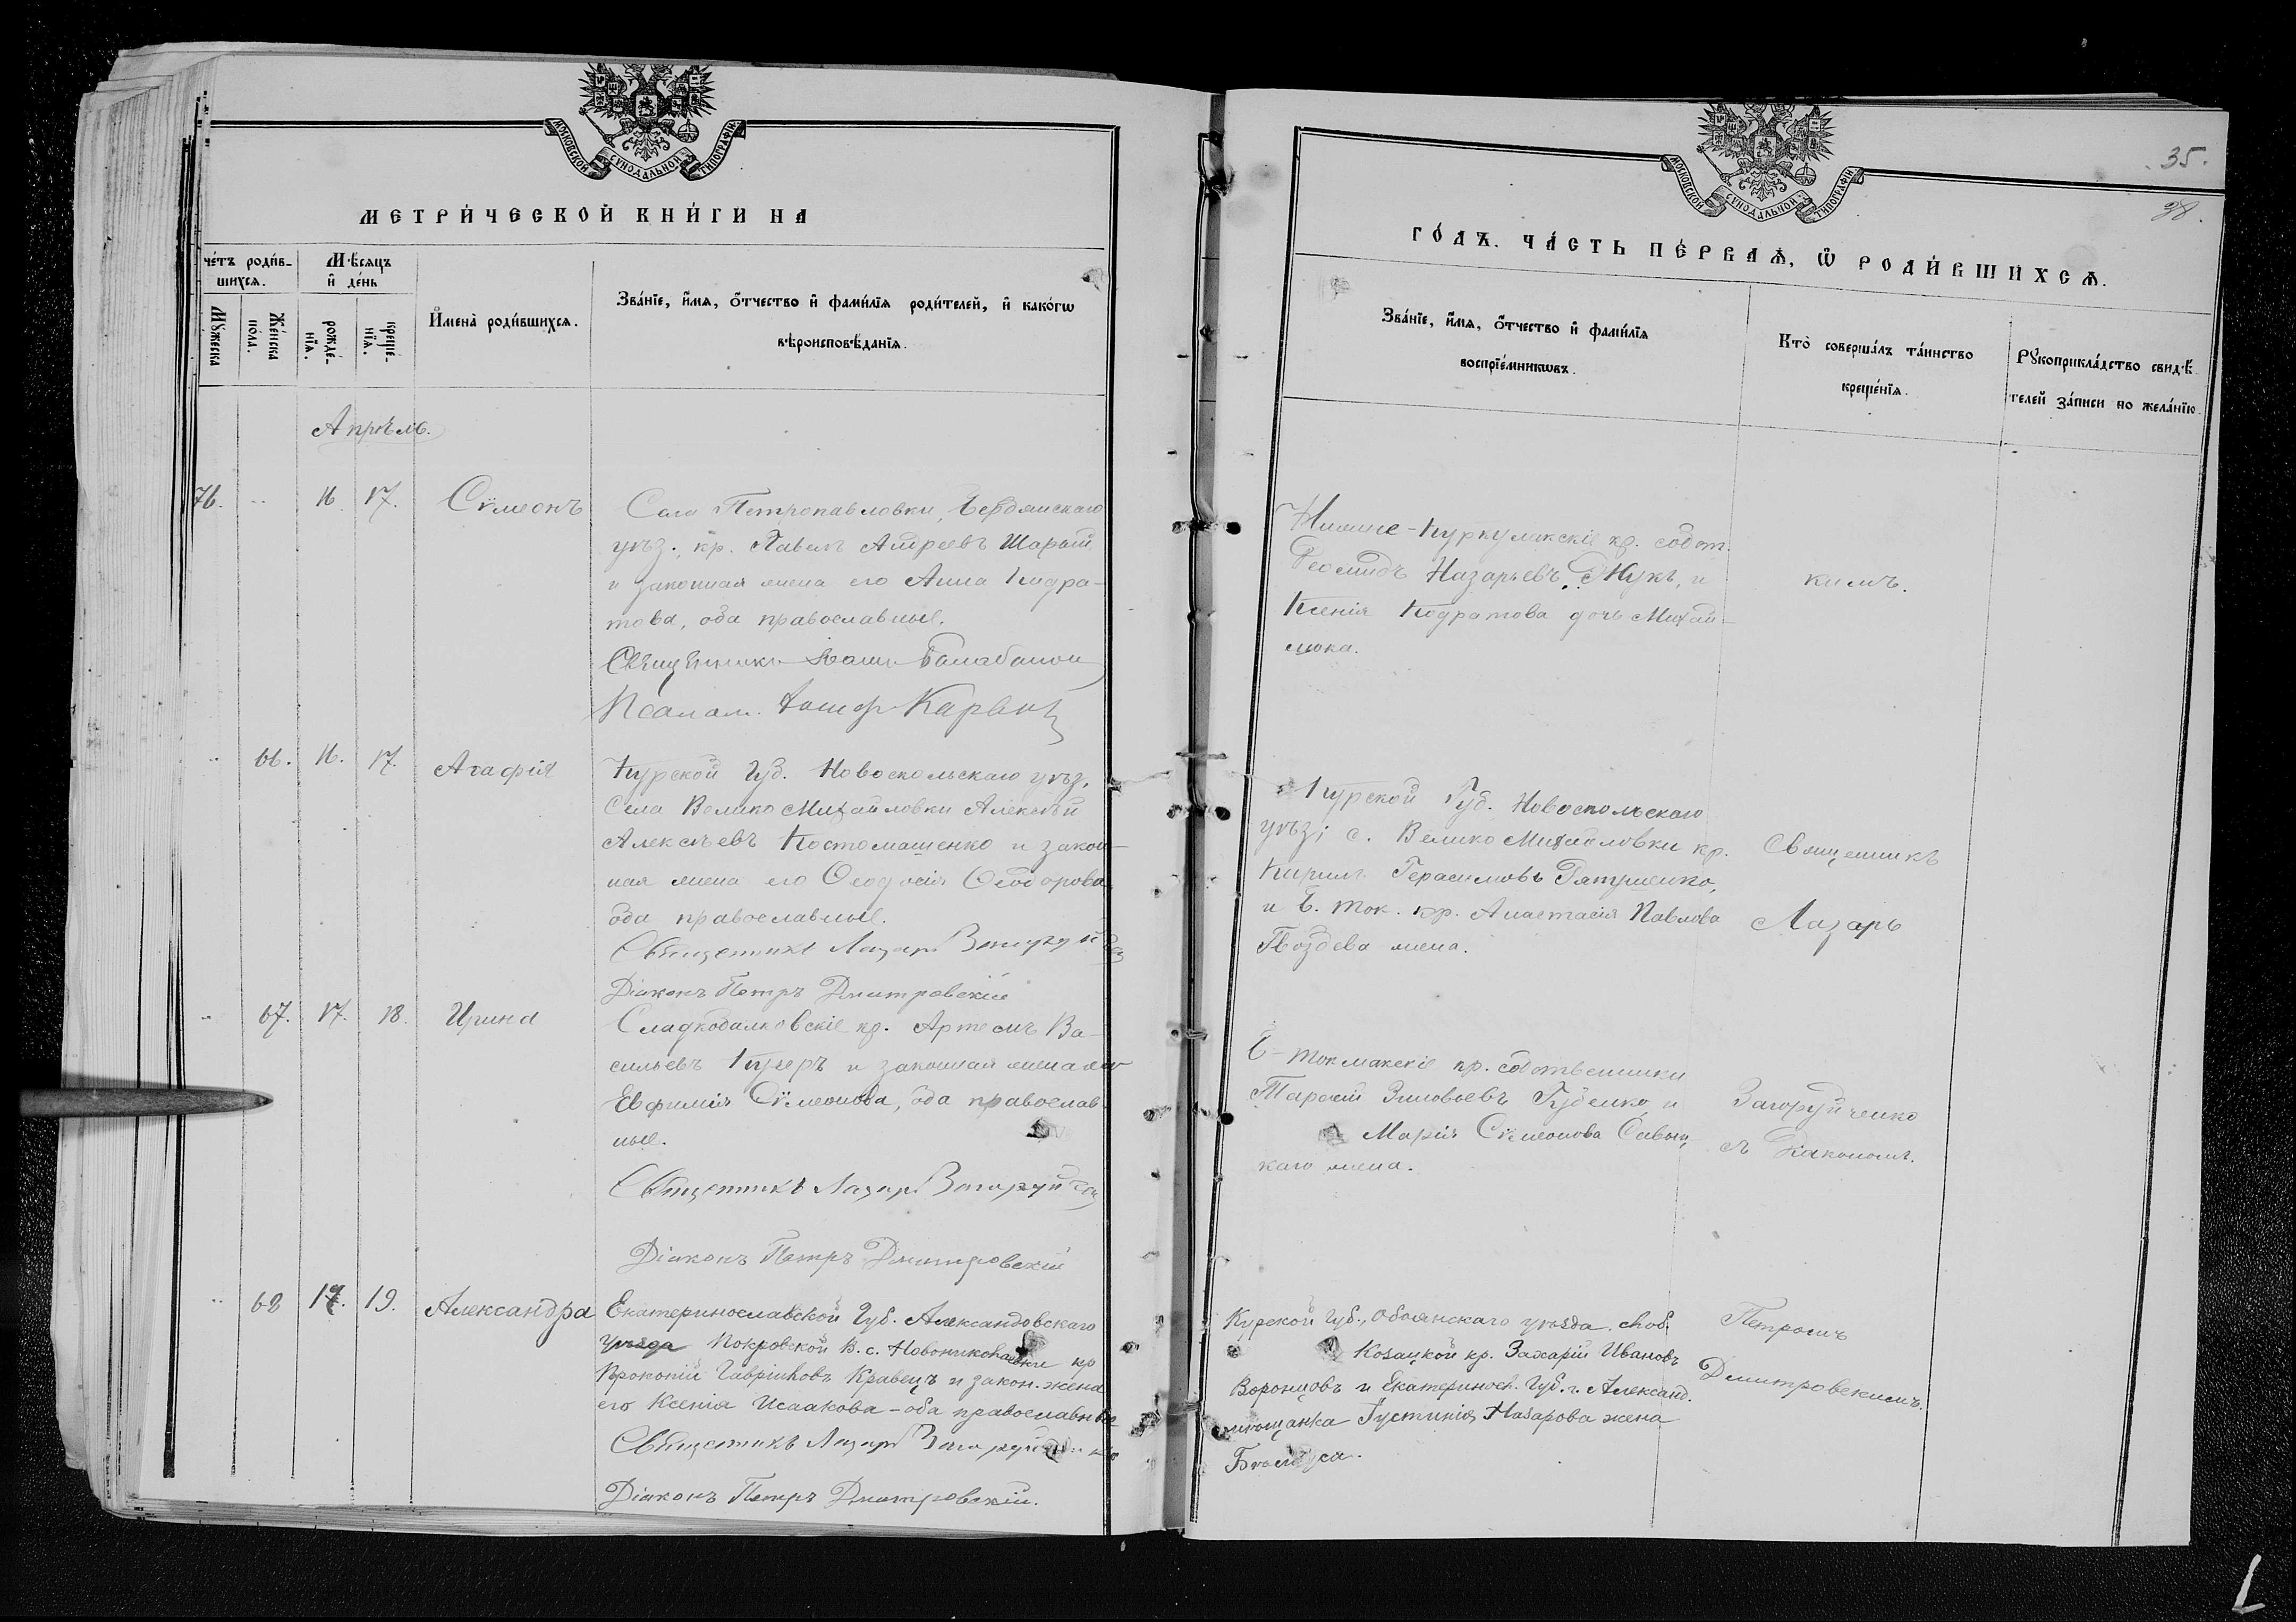 МОСКОВСКОЙ СУНОДАЛЬНОЙ ТИПОГРАФІИ
МЕТРИ́ЧЕСКОЙ КНИ́ГИ НА
че́тъ роди́в-
шихсѧ.
Мꙋ́жеска
Же́нска
по́ла.
Мѣ́сѧцъ
и҆ де́нь
рожде́-
нїѧ.
креще́-
нїѧ.
И҆мена̀ роди́вшихсѧ.
Зва́нїе, и҆́мѧ, ѻ҆́тчество и҆ фами́лїѧ роди́телей, и҆ како́гѡ
вѣроисповѣ́данїѧ.
Апрѣль.
76. .. 16. 17. Сѵмеонъ
Села Петропавловки, Бердянскаго
уѣз. кр. Павелъ Андреевъ
и законная жена его Анна Кндра-
това, оба православные.
Священникъ Іоаннъ Балабанов
Псалом. Іосиф
.. 66. 16. 17. Агафія
Курской Губ. Новоскольскаго уѣз.
Села Велико Михайловки Алексѣй
Алексѣевъ Костомашенко и закон-
ная жена его Ѳеодосія Ѳеодорова
оба православные.
Священникъ Лазарь Загоруйч
Діаконъ Петръ Дмитровскій
.. 67. 17. 18. Ирина
Сладкобалковскіе кр. Артемъ Ва-
сильевъ и законная жена его
Евфимія Сѵмеонова, оба православ-
ные.
Священникъ Лазарь Загоруйч
Діаконъ Петръ Дмитровскій
.. 68 17. 19. Александра
Екатеринославской Губ. Александовскаго
уѣзда Покровской В. с. Новониколаевки кр
Прокопій Гавріиловъ Кравецъ и закон. жена
его Ксенія Исаакова - оба православные
Священникъ Лазарь Загоруйченко
Діаконъ Петръ Дмитровскій.
35.
98.
МОСКОВСКОЙ СУНОДАЛЬНОЙ ТИПОГРАФІИ
ГО́ДЪ. ЧА́СТЬ ПЕ́РВАѦ, Ѡ҆ РОДИ́ВШИХСѦ.
Зва́нїе, и҆́мѧ, ѻ҆́тчество и҆ фами́лїѧ
воспрїе́мникѡвъ.
Кто̀ соверша́лъ та́инство
креще́нїѧ.
Рꙋкоприкла́дство свидѣ́-
телей за́писи по жела́нїю.
Нижне-Куркулакскіе кр. собст.
Леонидъ Назарьевъ Жукъ, и
Ксенія Кодратова дочь Михай-
люка.
кимъ.
Курской Губ. Новоскольскаго
уѣз; с. Велико Михайловки кр.
Кирилъ Герасимовъ
и Б. Ток. кр. Анастасія Павлова
Гвоздева жена.
Священникъ
Лазарь
Б-Токмакскіе кр. собственники
Тарасій Зиновьевъ Губенко и
Марія Сѵмеонова Савиц
каго жена.
Загоруйченко
съ Діакономъ
Курской Губ., Обоянскаго уѣзда, слоб.
Козацкой кр. Захарій Ивановъ
Воронцовъ и Екатеринос. Губ. г. Александ.
мѣщанка Густинія Назарова жена
Петромъ
Дмитровскимъ.